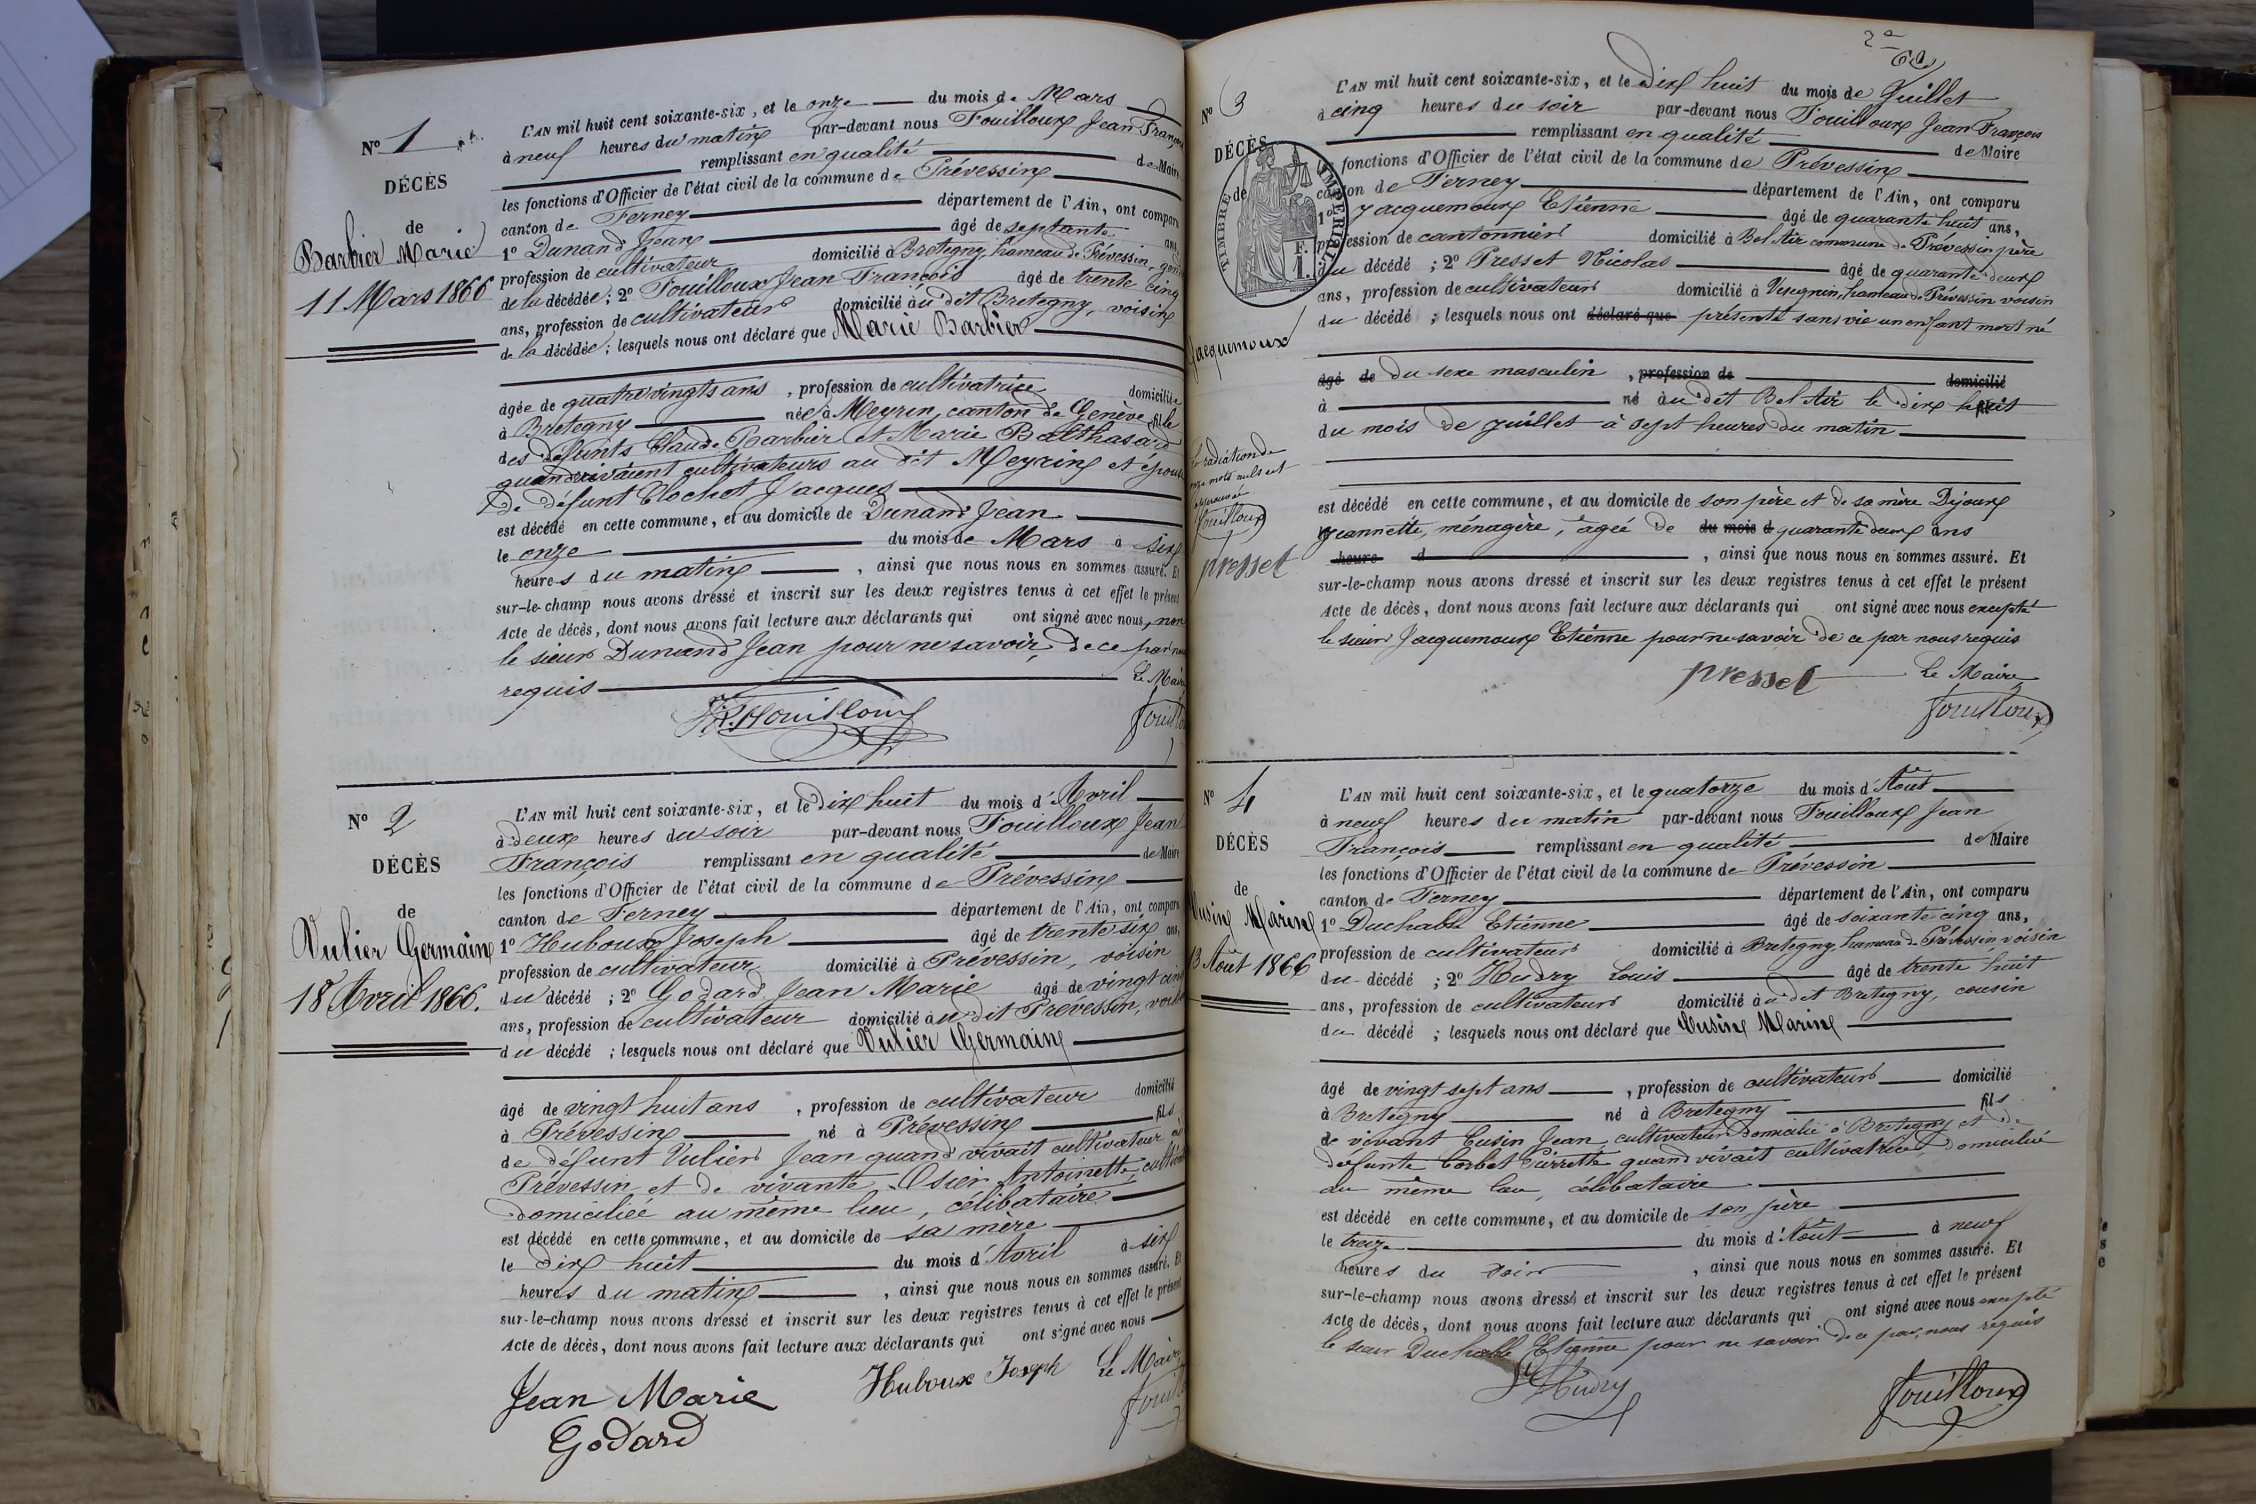 N° 1
DÉCÈS
de
Barbier Marie
11 Mars 1866
L'AN mil huit cent soixante-six, et le onze du mois de Mars
à neuf heures du matin par-devant nous Fouilloux Jean François
remplissant en qualité de Maire
les fonctions d'Officier de l'état civil de la commune de Prévessin
canton de Ferney département de l'Ain, ont comparu
1° Dunand Jean âgé de septante ans
profession de cultivateur domicilié à Bretegny, hameau de Prévessin,
de la décédée; 2° Fouilloux Jean François âgé de trente cinq
ans, profession de cultivateur domicilié au dit Bretegny, voisin
de la décédée; lesquels nous ont déclaré que Marie Barbier
âgée de quatre vingts ans, profession de cultivatrice domiciliée
à Bretegny née à Meyrin, canton de Genève fille
des défunts Claude Barbier et Marie Balthasard
quand vivaient cultivateurs au dit Meyrin et épouse
de défunt Clochet Jacques
est décédé en cette commune, et au domicile de Dunand Jean
le onze du mois de Mars à six
heures du matin, ainsi que nous nous en sommes assuré. Et
sur-le-champ nous avons dressé et inscrit sur les deux registres tenus à cet effet le présent
Acte de décès, dont nous avons fait lecture aux déclarants qui ont signé avec nous, non
le sieur Dunand Jean pour ne savoir de ce par nous
requis Le Maire
Fouilloux
N° 2
DÉCÈS
de
Vulier Germain
18 Avril 1866.
L'AN mil huit cent soixante-six, et le dix huit du mois d'Avril
à deux heures du soir par-devant nous Fouilloux Jean
François remplissant en qualité de Maire
les fonctions d'Officier de l'état civil de la commune de Prévessin
canton de Ferney département de l'Ain, ont comparu
1° Huboux Joseph âgé de trente six ans,
profession de cultivateur domicilié à Prévessin, voisin
du décédé; 2° Godard Jean Marie âgé de vingt cinq
ans, profession de cultivateur domicilié au dit Prévessin, voisin
du décédé; lesquels nous ont déclaré que Vulier Germain
âgé de vingt huit ans, profession de cultivateur domicilié
à Prévessin né à Prévessin fils
de défunt Vulier Jean quand vivait cultivateur à
Prévessin et de vivante Osier Antoinette,
domiciliée au même lieu, célibataire
est décédé en cette commune, et au domicile de sa mère
le dix huit du mois d'Avril à six
heures du matin, ainsi que nous nous en sommes assuré. Et
sur-le-champ nous avons dressé et inscrit sur les deux registres tenus à cet effet le présent
Acte de décès, dont nous avons fait lecture aux déclarants qui ont signé avec nous
Jean Marie Huboux Joseph Le Maire
Godard
2e
N° 3
DÉCÈS
de
TIMBRE IMPERIAL
F. 1.
Jacquemoux
La radiation de
onze mots nuls est
approuvée
Fouilloux
presset
L'AN mil huit cent soixante-six, et le dix huit du mois de Juillet
à cinq heures du soir par-devant nous Fouilloux Jean François
remplissant en qualité de Maire
les fonctions d'Officier de l'état civil de la commune de Prévessin
canton de Ferney département de l'Ain, ont comparu
1° Jacquemoux Etienne âgé de quarante huit ans,
profession de cantonnier domicilié à Bel Air commune de Prévessin père
du décédé; 2° Presset Nicolas âgé de quarante deux
ans, profession de cultivateur domicilié à Vesegnin, hameau de Prévessin voisin
du décédé; lesquels nous ont déclaré que présenté sans vie un enfant mort né
âgé de du sexe masculin, profession de domicilié
à né au dit Bel Air le dix huit
du mois de juillet à sept heures du matin
est décédé en cette commune, et au domicile de son père et de sa mère Dijoux
Jeannette, ménagère, âgée de du mois d quarante deux ans
heure d, ainsi que nous nous en sommes assuré. Et
sur-le-champ nous avons dressé et inscrit sur les deux registres tenus à cet effet le présent
Acte de décès, dont nous avons fait lecture aux déclarants qui ont signé avec nous excepté
le sieur Jacquemoux Etienne pour ne savoir de ce par nous requis
presset Le Maire
Fouilloux
N° 4
DÉCÈS
de
Cusin Marin
13 Août 1866
L'AN mil huit cent soixante-six, et le quatorze du mois d'Août
à neuf heures du matin par-devant nous Fouilloux Jean
François remplissant en qualité de Maire
les fonctions d'Officier de l'état civil de la commune de Prévessin
canton de Ferney département de l'Ain, ont comparu
1° Duchable Etienne âgé de soixante cinq ans,
profession de cultivateur domicilié à Bretegny, hameau de Prévessin voisin
du décédé; 2° Hudry Louis âgé de trente huit
ans, profession de cultivateur domicilié au dit Bretegny, cousin
du décédé; lesquels nous ont déclaré que Cusin Marin
âgé de vingt sept ans, profession de cultivateur domicilié
à Bretegny né à Bretegny fils
de vivant Cusin Jean, cultivateur domicilié à Bretegny et de
défunte Corbet Pierrette quand vivait cultivatrice domiciliée
au même lieu, célibataire
est décédé en cette commune, et au domicile de son père
le treize du mois d'Août à neuf
heures du soir, ainsi que nous nous en sommes assuré. Et
sur-le-champ nous avons dressé et inscrit sur les deux registres tenus à cet effet le présent
Acte de décès, dont nous avons fait lecture aux déclarants qui ont signé avec nous excepté
le sieur Duchable Etienne pour ne savoir de ce par nous requis
Hudry Fouilloux